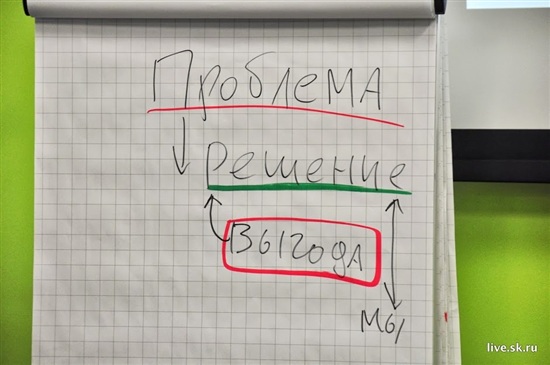 Проблема
Решение
Выгода
Мы
live.sk.ru